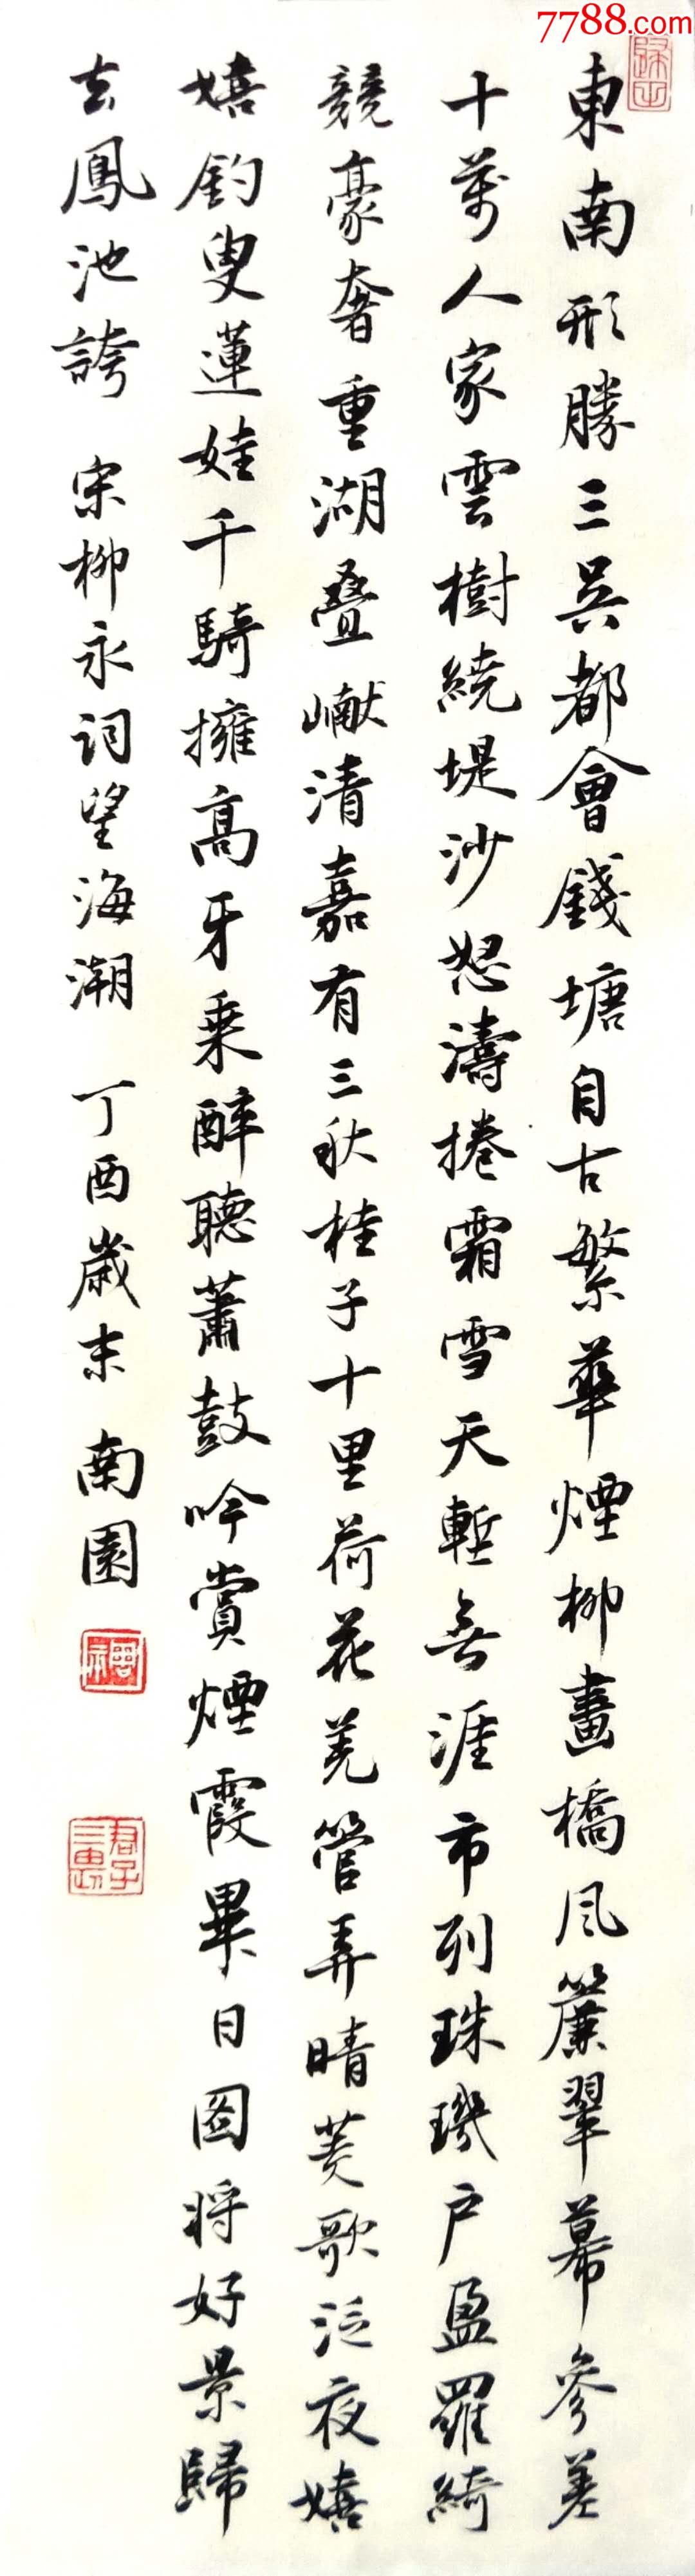 7788.com
東南形勝三吳都會錢塘自古繁華煙柳畫橋風簾翠幕參差
十萬人家雲樹繞堤沙怒濤捲霜雪天塹無涯市列珠璣戶盈羅綺
競豪奢重湖疊巘清嘉有三秋桂子十里荷花羌管弄晴菱歌泛夜嬉
嬉釣叟蓮娃千騎擁高牙乘醉聽蕭鼓吟賞煙霞異日圖將好景歸
去鳳池誇 宋柳永詞望海潮 丁酉歲末 南園